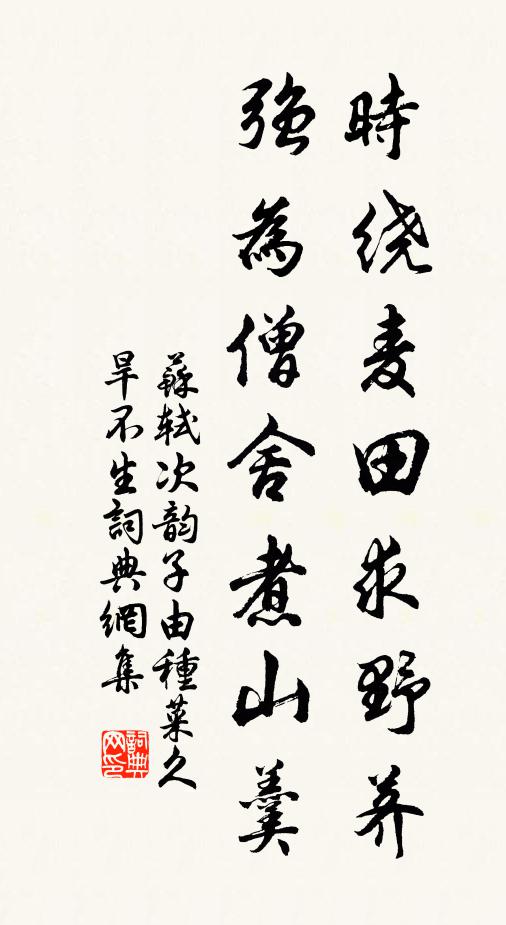 時绕麦田求野荠
強為僧舍煮山羹
蘇軾次韵子由種菜久
旱不生詞典網集
詞典
网印